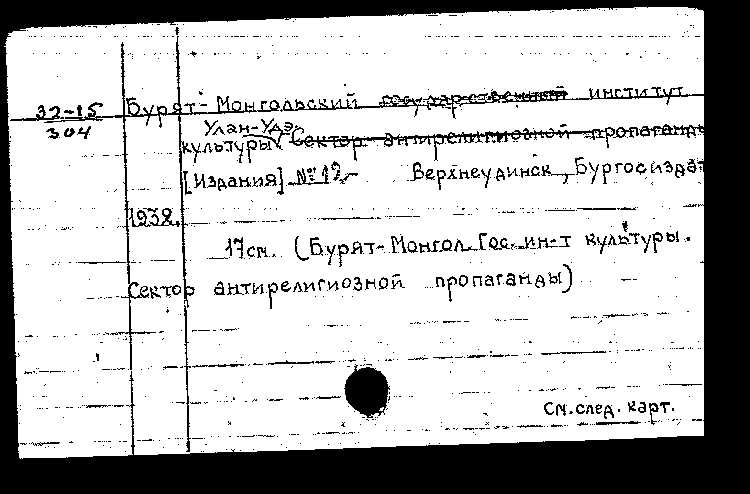 32-15
304
Бурят-Монгольский государственный институт
Улан-Удэ.
культуры. Сектор антирелигиозной пропаганды
[Издания] № 12,- Верхнеудинск, Бургосиздат
1932.
17см. (Бурят-Монгол. Гос. ин-т культуры.
Сектор антирелигиозной пропаганды)
См. след. карт.